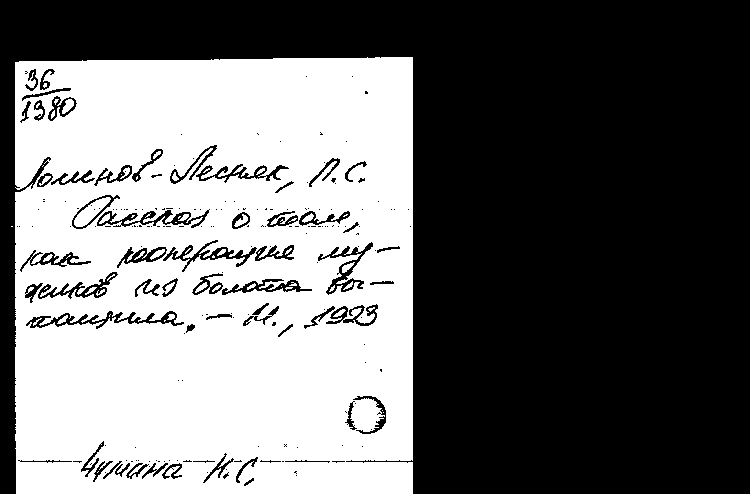 36
1380
Логинов-Лесняк, П.С.
Рассказ о том,
как кооперация му-
жиков из болота вы-
тащила. - М., 1923
Н.С.